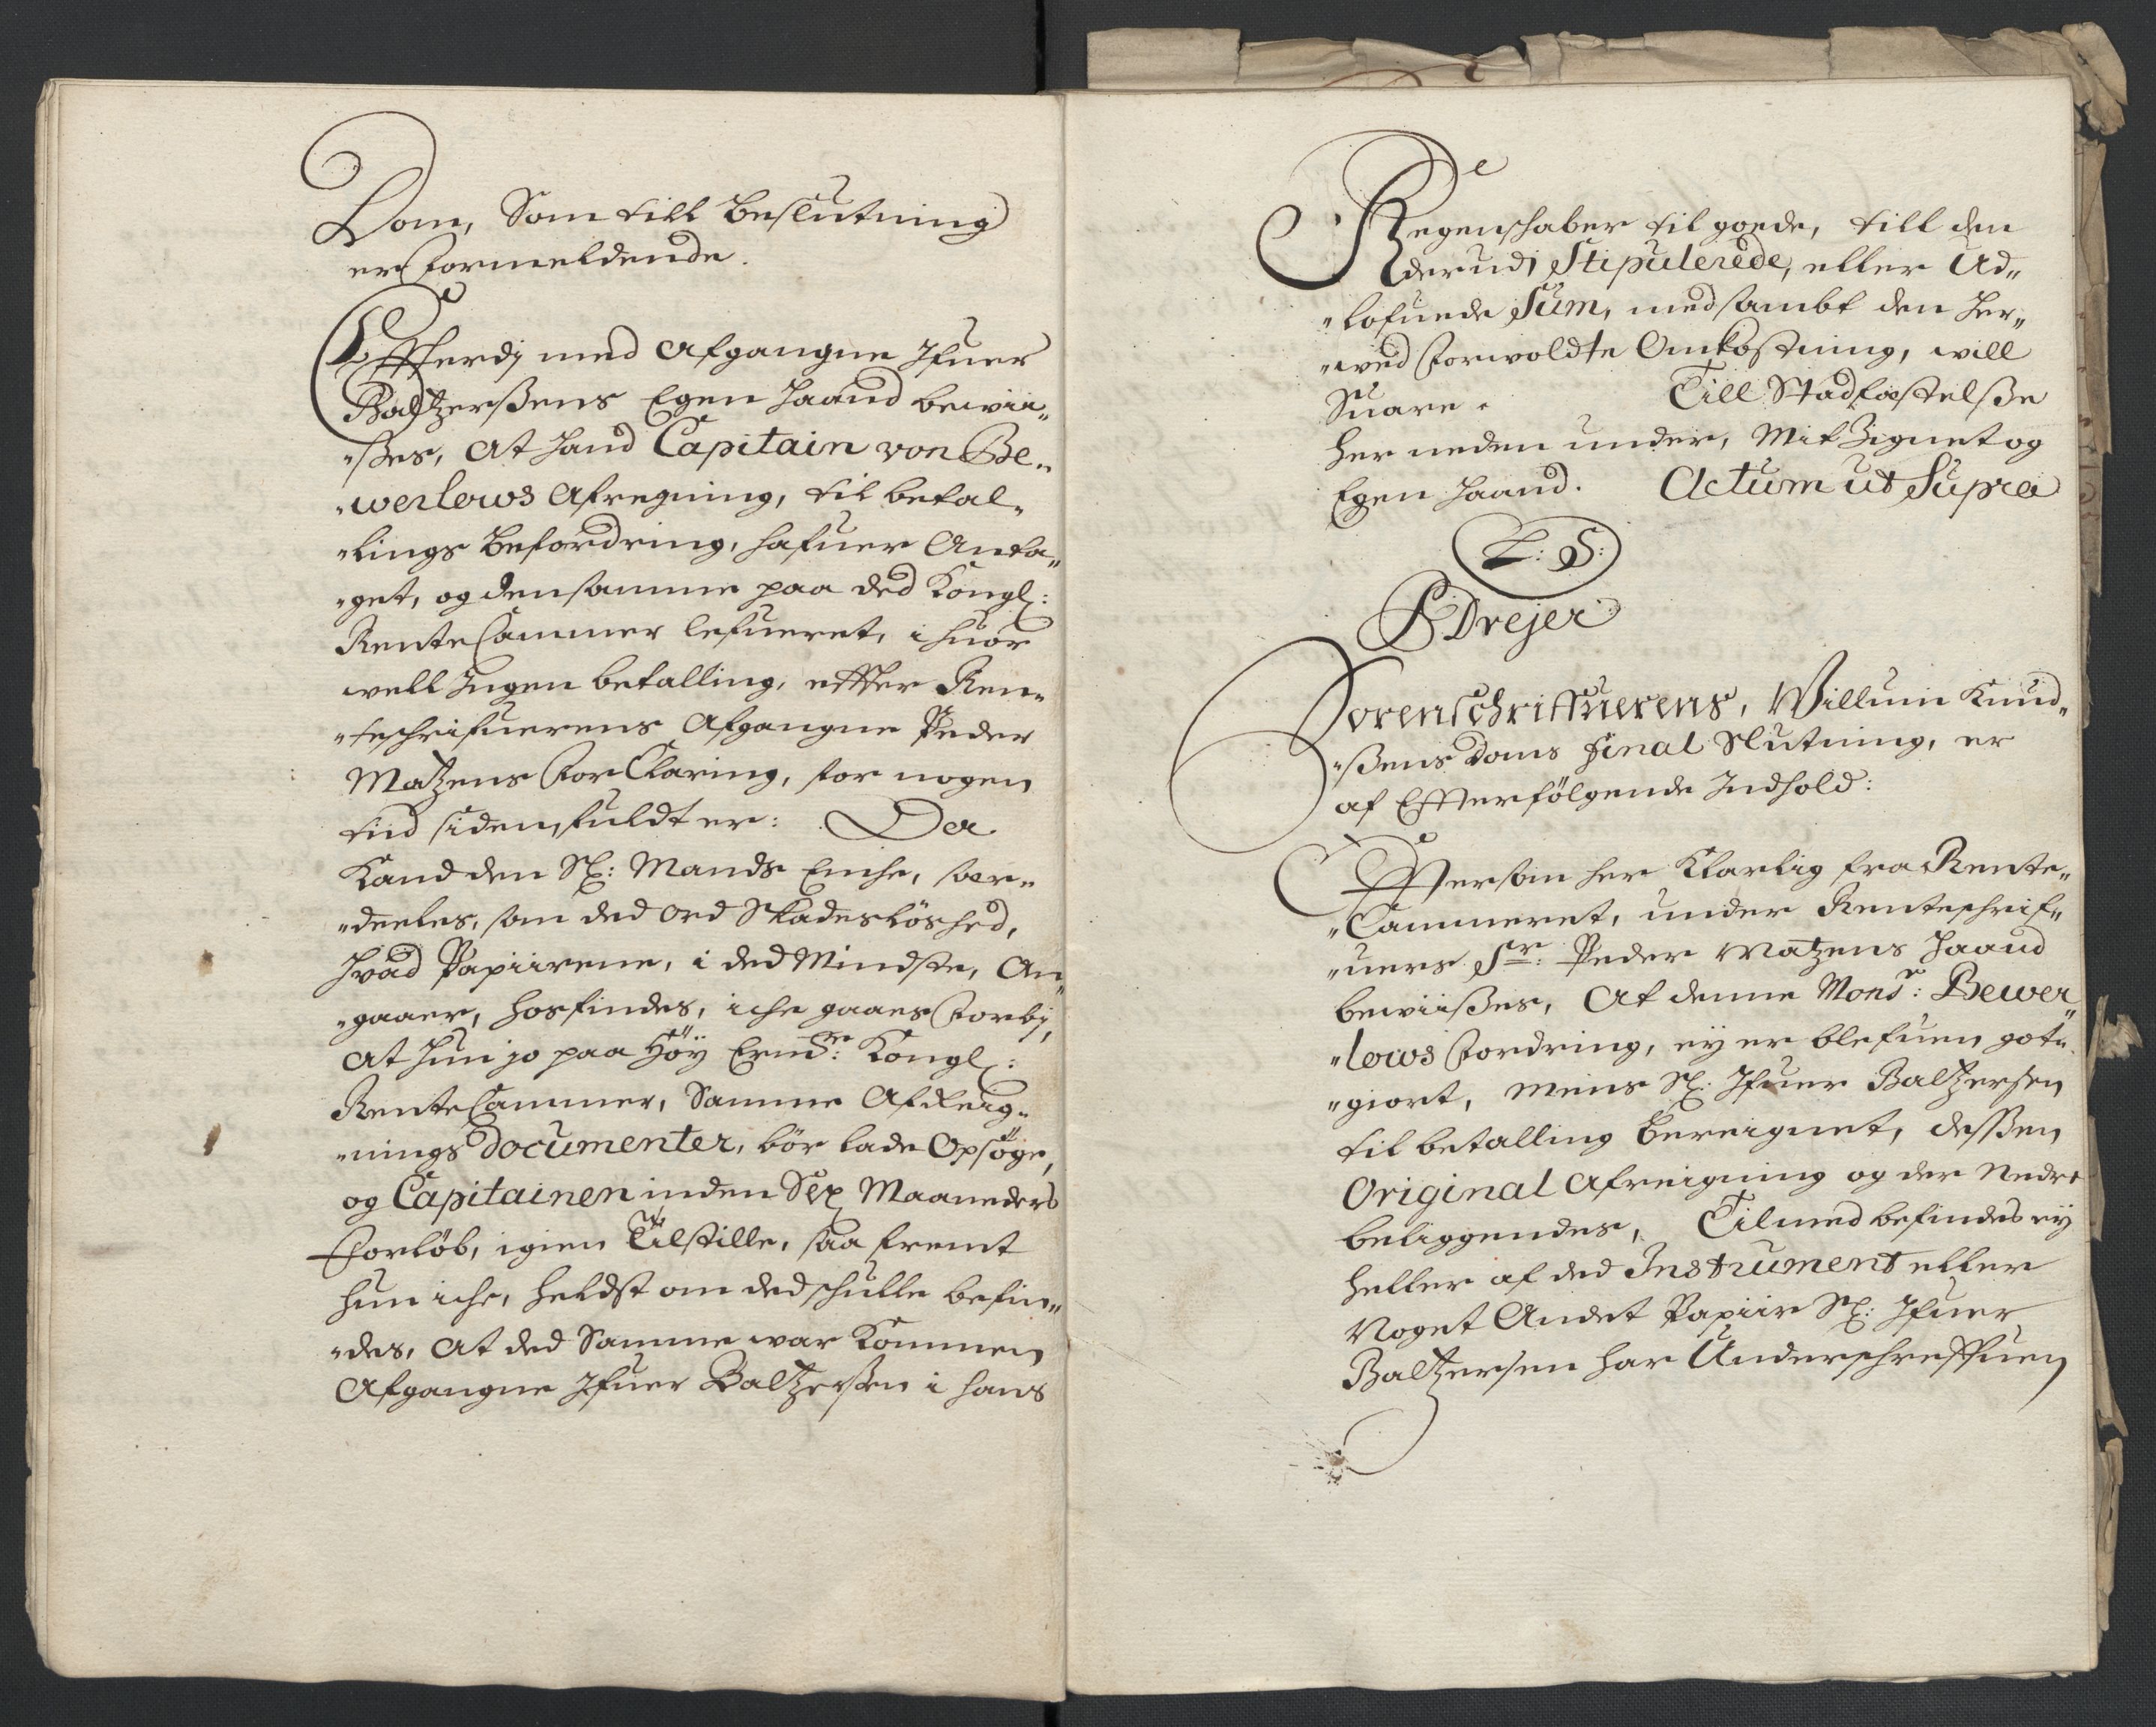 Dom, Som till beslutning
er formeldende.
Effterdj med afgangne Ifuer
Baltzerßens Egen Haand bewii„
„ßes, at Hand Capitain von Be„
„werlows afregning, til betal„
„lings befordring, hafuer Anta„
„get, og den samme paa ded Kongl:
Rente Cammer lefueret, ihuor
well Ingen betalling, effter Ren„
„teschrifuerens afgangne Peder
Matzens forClaring, for nogen
tiid siden, fuldt er: Der
Kand den Sl: Mands Enche, sær„
„deeles, som ded ord Skadesløshed,
Hvad Papiirene, i ded Mindste, An„
„gaaer, hosfindes, iche gaaes forbj,
at Hun jo paa Høÿ Ermte: Kongl:
Rente Cammer, Samme Afreig„
„nings documenter, bør lade Opsøge,
og Capitainen inden Sex Maaneders
forløb, igien Tilstille, saa fremt
hun iche, heldst om ded schulle befin„
„des, at ded Samme war kommen
Afgangne Ifuer Baltzersen i hans
Regenschaber til goede, till den
derudj Stipulerede, eller Ud„
„lofuede Sum, med sambt den her„
„wed forvoldte Omkostning, will
Suare. Till Stadfæstelße
her neden under, Mit Zignet og
Egen Haand. Actum ut Supra
L: S:
B Drejer
Sorenschriffuerens, Willum Knud„
„ßens Doms final Slutning, er
af Effterfølgende Indhold:
Efftersom her klarlig fra Rente„
„Cammeret, under Renteschrif„
„uers Sr: Peder Matzens Haand
bewiißes, At denne Monsr: Bewer„
„lows fordring, ey er blefuen got„
„giort, mens Sl: Ifuer Baltzersen
til betalling bereignet, dessen
Original afreigning og der Nedre
beliggendes, Tilmed befindes ey
heller af ded Instrument eller
Noget Andet Papiir Sl: Ifuer
Baltzersen har Underschreffuen